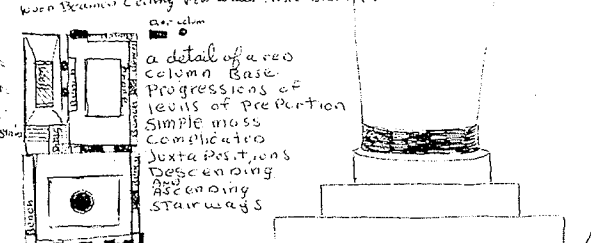 Beamed Ceiling
column
a detail of a red
column Base
Progressions of
levels of PrePortion
Simple mass
Complicated
Juxta Positions
Descending
AND
Ascending
Stairways
Bench
Bench
Bench
Stairs